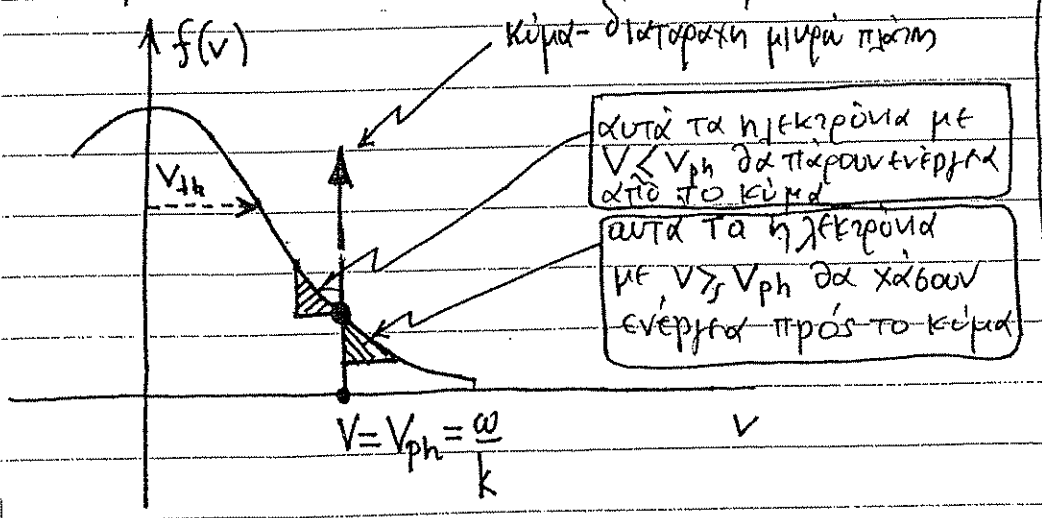 f(v)
κύμα- διαταραχή μικρού πλάτη
αυτά τα ηλεκτρόνια με
V ≲ Vph θα πάρουν ενέργεια
από το κύμα
Vth
αυτά τα ηλεκτρόνια
με V ≳ Vph θα χάσουν
ενέργεια πρός το κύμα
V = Vph = ω/k
V